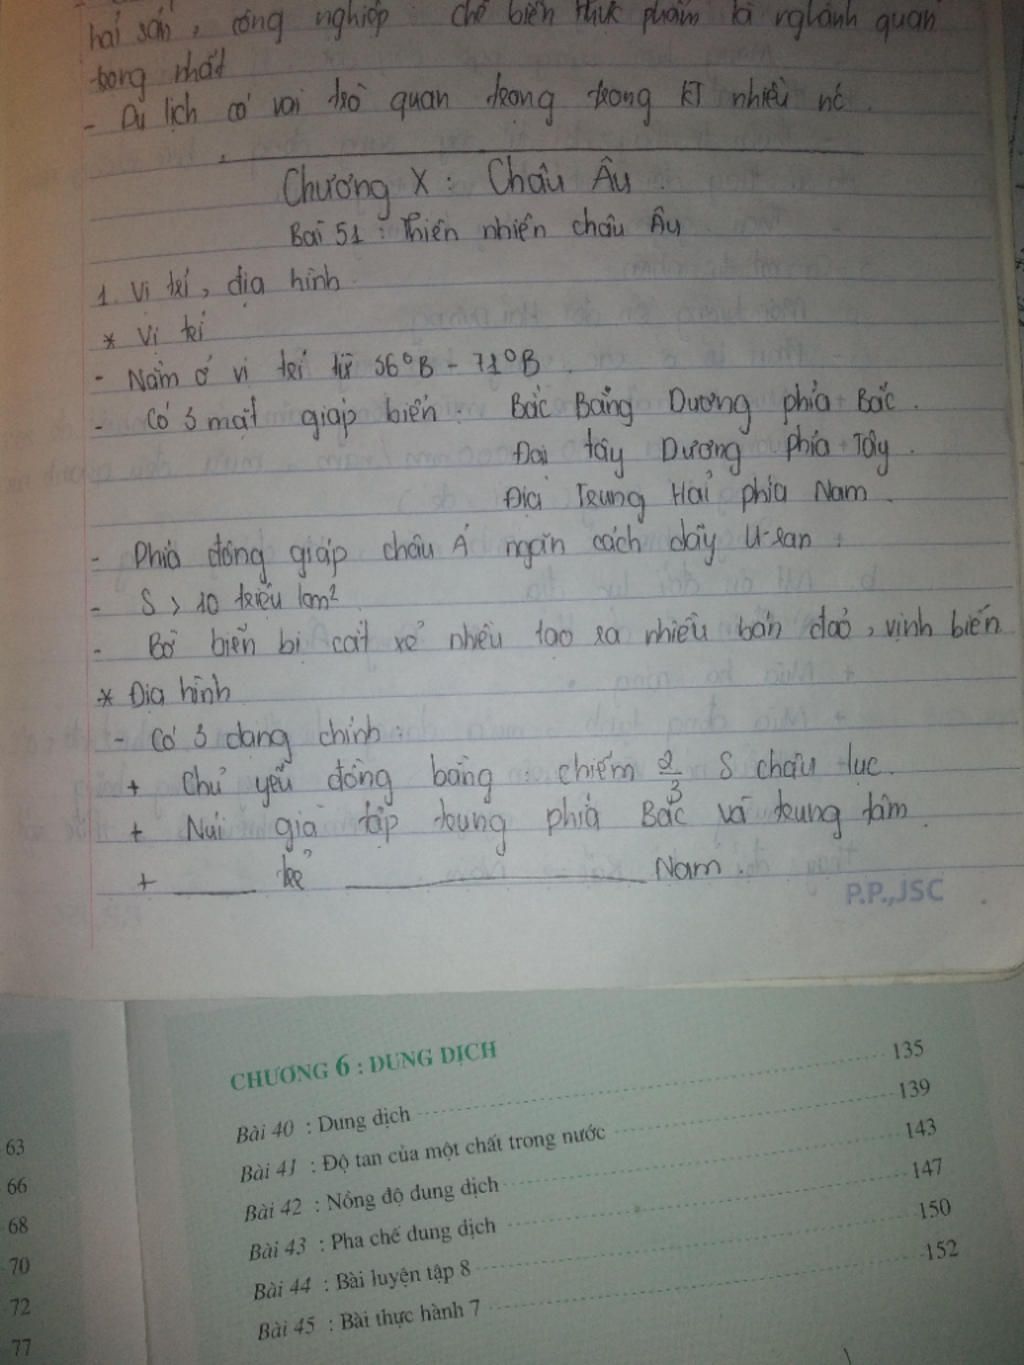 hải sản, công nghiệp chế biến thực phẩm là nghành quan
trọng nhất
- Du lịch có vai trò quan trọng trong KT nhiều nc.
Chương X : Châu Âu.
Bài 51 : Thiên nhiên châu Âu
1. Vị trí, địa hình
* Vị trí
- Nằm ở vị trí từ 36°B - 71°B.
- Có 3 mặt giáp biển: Bắc Băng Dương phía Bắc.
Đại tây Dương phía Tây.
Địa Trung Hải phía Nam.
- Phía đông giáp châu Á ngăn cách dãy U-ran
- S > 10 triệu km²
- Bờ biển bị cắt xẻ nhiều tạo ra nhiều bán đảo, vịnh biển
* Địa hình
- Có 3 dạng chính:
+ Chủ yếu đồng bằng : chiếm 2/3 S châu lục.
+ Núi già tập trung phía Bắc và trung tâm.
+ ____ trẻ ____________ Nam.
P.P.,JSC
CHƯƠNG 6 : DUNG DỊCH
135
Bài 40 : Dung dịch
139
Bài 41 : Độ tan của một chất trong nước
143
Bài 42 : Nồng độ dung dịch
147
Bài 43 : Pha chế dung dịch
150
Bài 44 : Bài luyện tập 8
152
Bài 45 : Bài thực hành 7
63
66
68
70
72
77